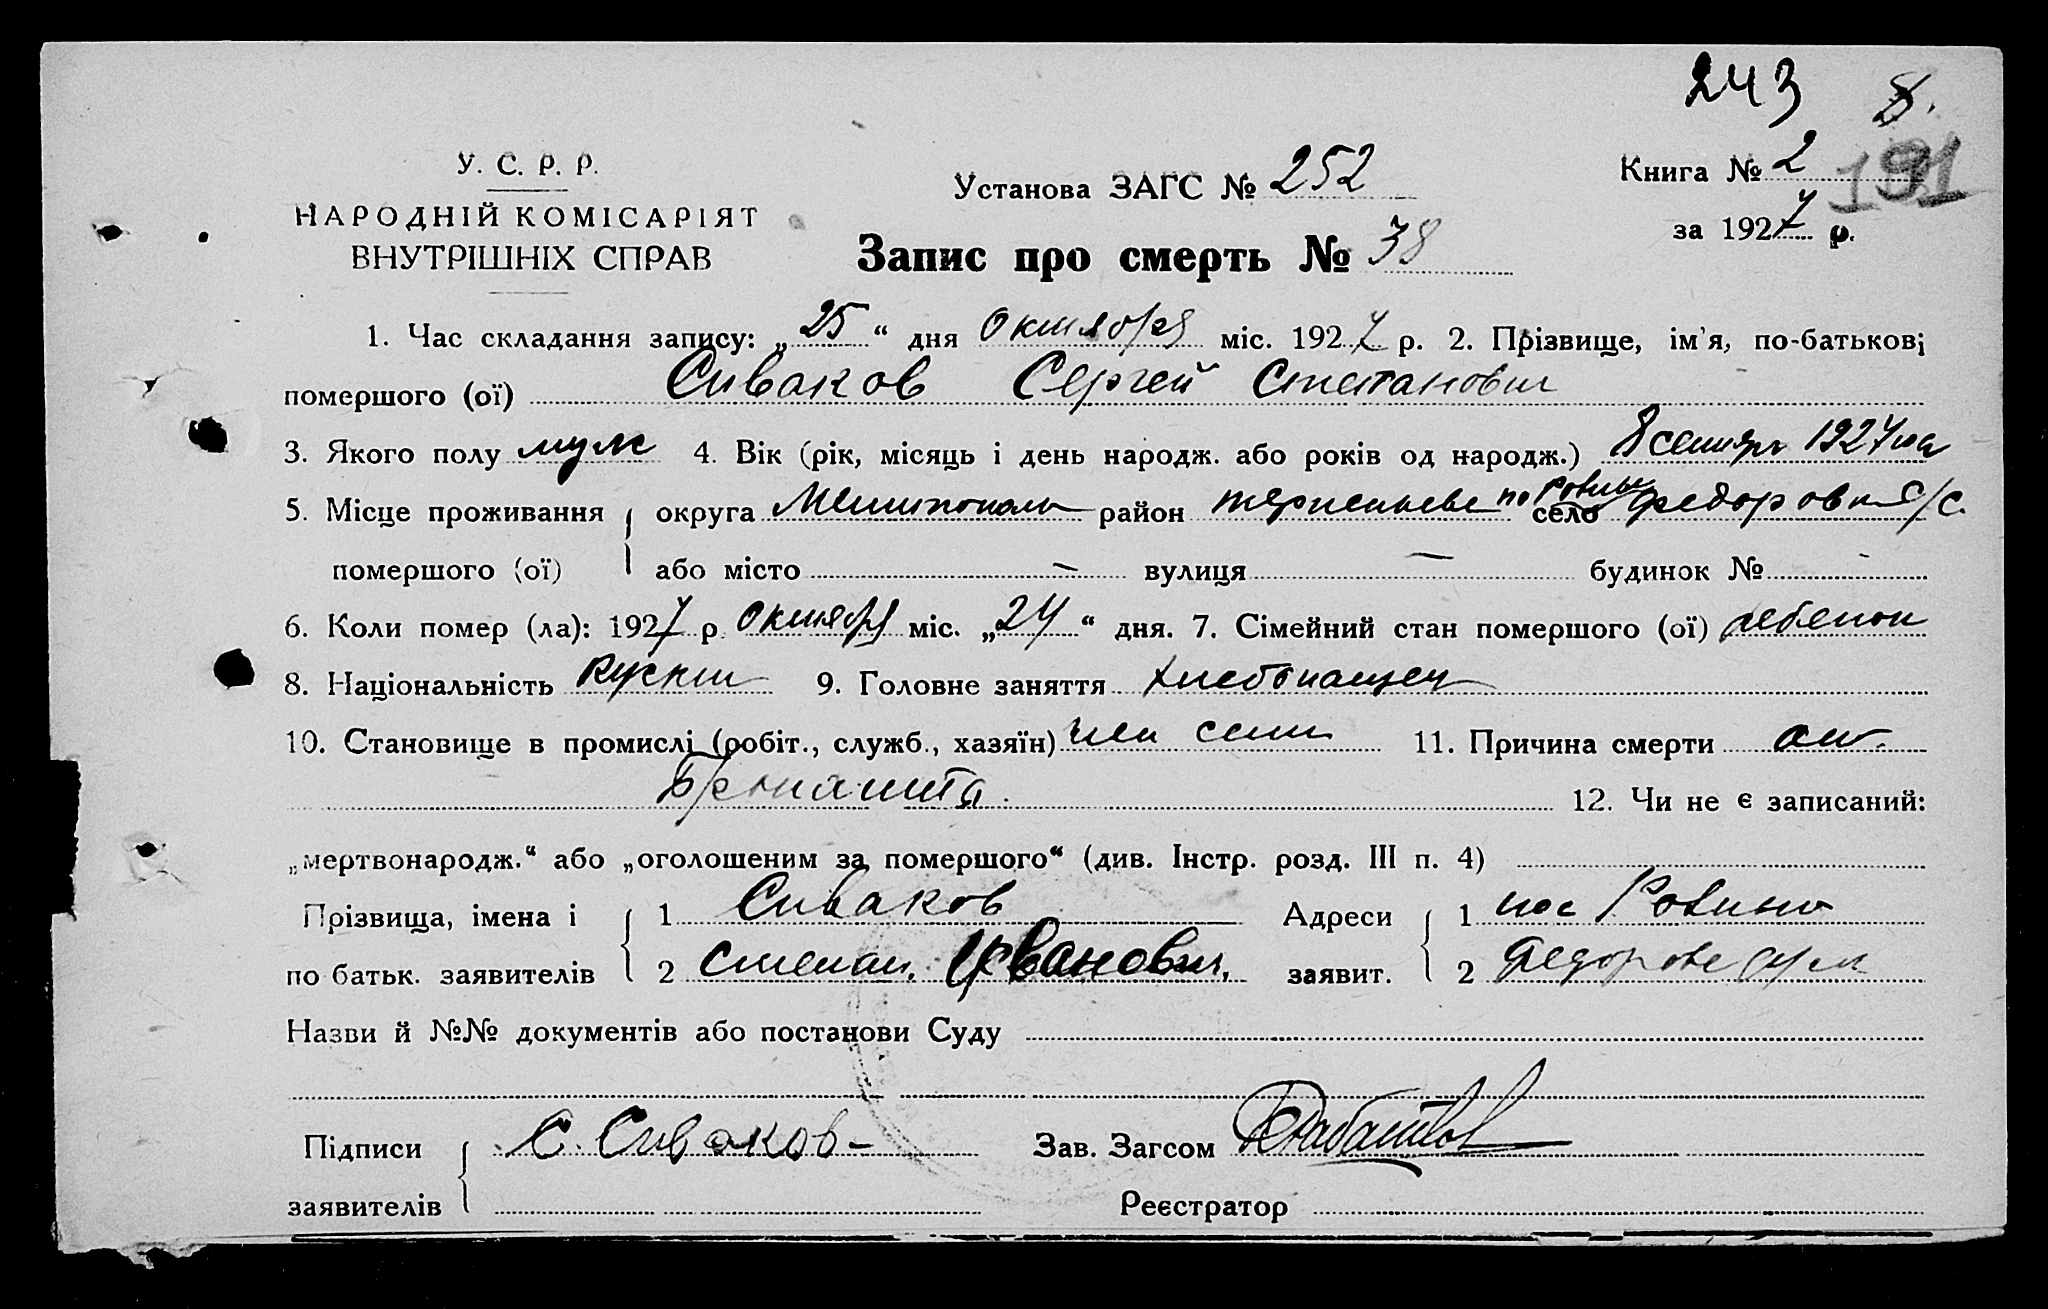 243 8.
У. С. Р. Р.
НАРОДНІЙ КОМІСАРІЯТ
ВНУТРІШНІХ СПРАВ
Установа ЗАГС № 252
Книга № 2 191
за 1927 р.
Запис про смерть № 38
1. Час складання запису: „25“ дня Октября міс. 1927 р. 2. Прізвище, ім'я, по-батькові
помершого (ої) Сиваков Сергей Степанович
3. Якого полу муж 4. Вік (рік, місяць і день народж. або років од народж.) 8 сентярь 1927
5. Місце проживання округа Мелитополь район село Федоровк с/с.
помершого (ої) або місто — вулиця — будинок № -
6. Коли помер (ла): 1927 р. Октября міс. „24“ дня. 7. Сімейний стан помершого (ої) ребенок
8. Національність Руский 9. Головне заняття хлебопашец
10. Становище в промислі (робіт., служб., хазяїн) член семи 11. Причина смерти от.
12. Чи не є записаний:
„мертвонародж.“ або „оголошеним за помершого“ (див. Інстр. розд. III п. 4)
Прізвища, імена і 1 Сиваков Адреси 1 пос
по батьк. заявителів 2 Степан. Иванович. заявит. 2
Назви й №№ документів або постанови Суду
Підписи С. Сиваков Зав. Загсом
заявителів Реєстратор